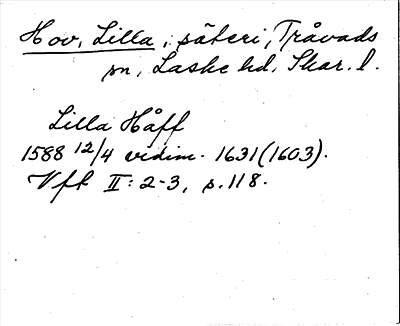 Hov, Lilla, säteri, Tråvads
sn, Laske hd, Skar. l.
Lilla Håff
1588 12/4 vidim. 1631 (1603).
Vfk II: 2-3, s. 118.